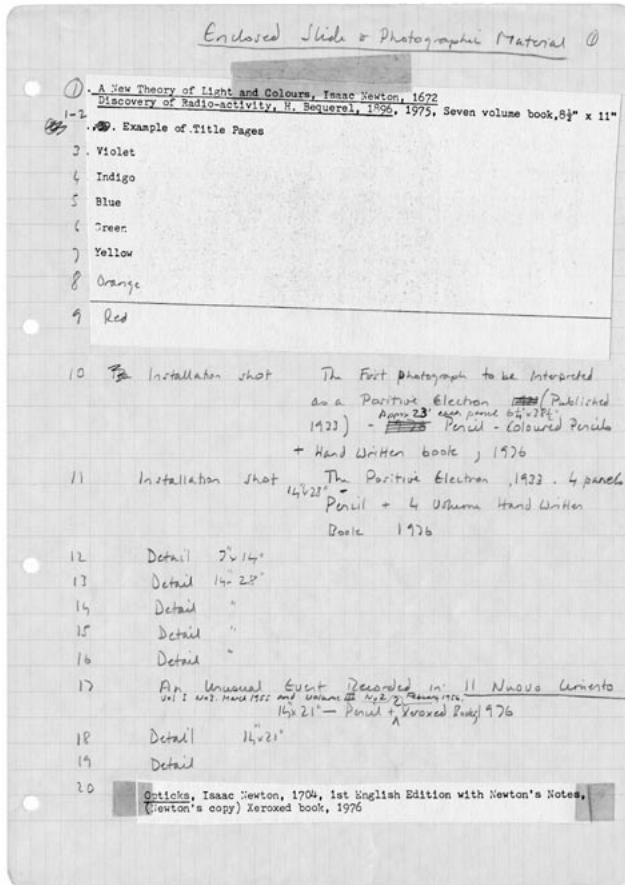 Enclosed Slide & Photographic Material ①
① . A New Theory of Light and Colours, Isaac Newton, 1672
Discovery of Radio-activity, H. Bequerel, 1896, 1975, Seven volume book, 8½" x 11"
1-2 . Example of Title Pages
3 . Violet
4 Indigo
5 Blue
6 Green
7 Yellow
8 Orange
9 Red
10 Installation shot The First photograph to be Interpreted
as a Positive Electron (Published
Appro 23' each panel
1933) - Pencil - Coloured Pencils
+ Hand Written book, 1976
11 Installation shot The Positive Electron, 1933. 4 panels
14"x28" Pencil + 4 Volume Hand Written
Book 1976
12 Detail 7" x 14"
13 Detail 14" 28"
14 Detail "
15 Detail "
16 Detail "
17 An Unusual Event Recorded in Il Nuovo Cimento
Vol I No 3. March 1955 and Volume III No 2 February 1956.
14"x 21" — Pencil + 2 Xeroxed Books, 1976
18 Detail 14"x21"
19 Detail
20 Opticks, Isaac Newton, 1704, 1st English Edition with Newton's Notes,
(Newton's copy) Xeroxed book, 1976